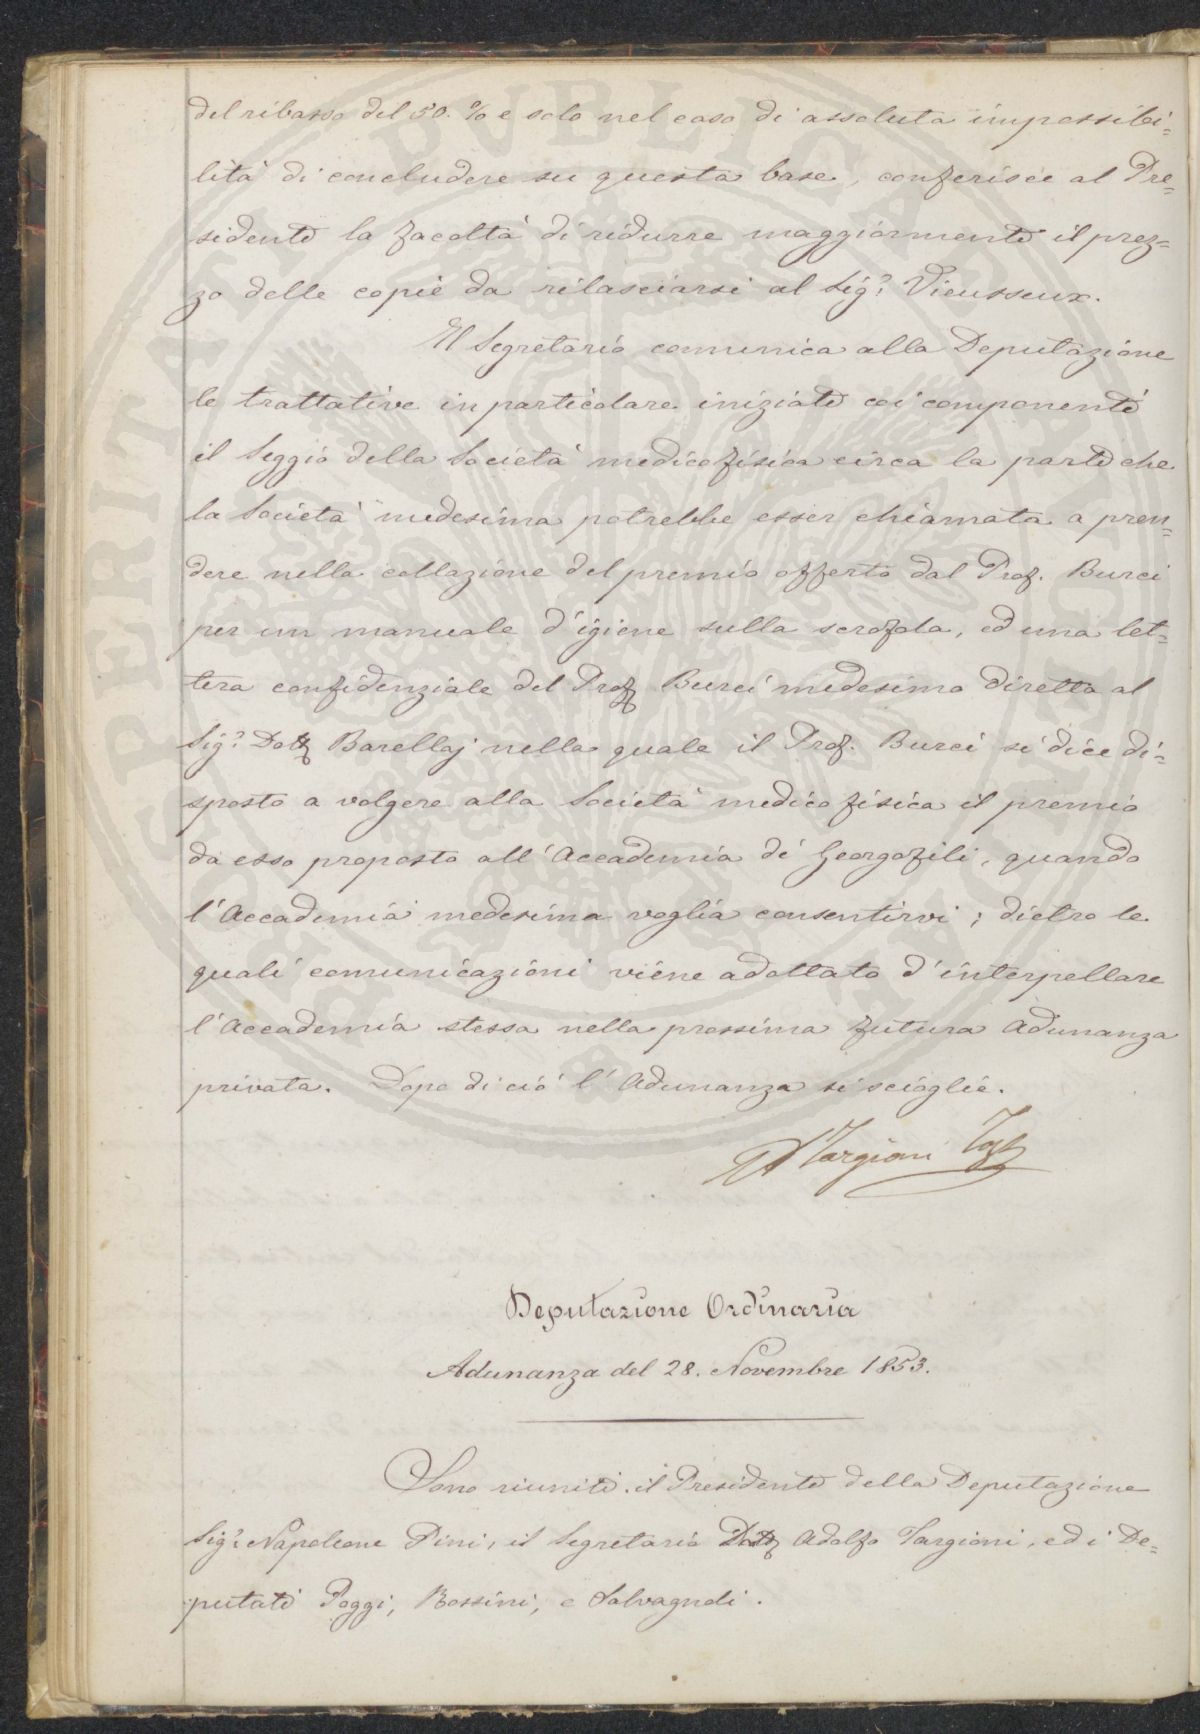 del ribasso del 50. % e solo nel caso di assoluta impossibi=
lità di concludere su questa base, conferisce al Pre=
sidente la facoltà di ridurre maggiormente il prez=
zo delle copie da rilasciarsi al Sig.r Vieusseux.
Il Segretario comunica alla Deputazione
le trattative in particolare iniziate coi componenti
il Seggio della Società medico fisica circa la parte che
la Società medesima potrebbe esser chiamata a pren=
dere nella collazione del premio offerto dal Prof. Burci
per un manuale d'igiene sulla scrofola, ed una let=
tera confidenziale del Prof Burci medesimo diretta al
Sig.r Dott Barellaj nella quale il Prof. Burci si dice di=
sposto a volgere alla Società medico fisica il premio
da esso proposto all'Accademia dei Georgofili, quando
l'Accademia medesima voglia consentirvi; dietro le
quali comunicazioni viene adottato d'interpellare
l'Accademia stessa nella prossima futura Adunanza
privata. Dopo di ciò l'Adunanza si scioglie.
A Targioni Tozz
Deputazione Ordinaria
Adunanza del 28. Novembre 1853.
Sono riuniti il Presidente della Deputazione
Sig.r Napoleone Pini, il Segretario Dott Adolfo Targioni, ed i De=
putati Poggi, Bossini, e Salvagnoli.
PROSPERITATI PVBLICAE AVGENDAE